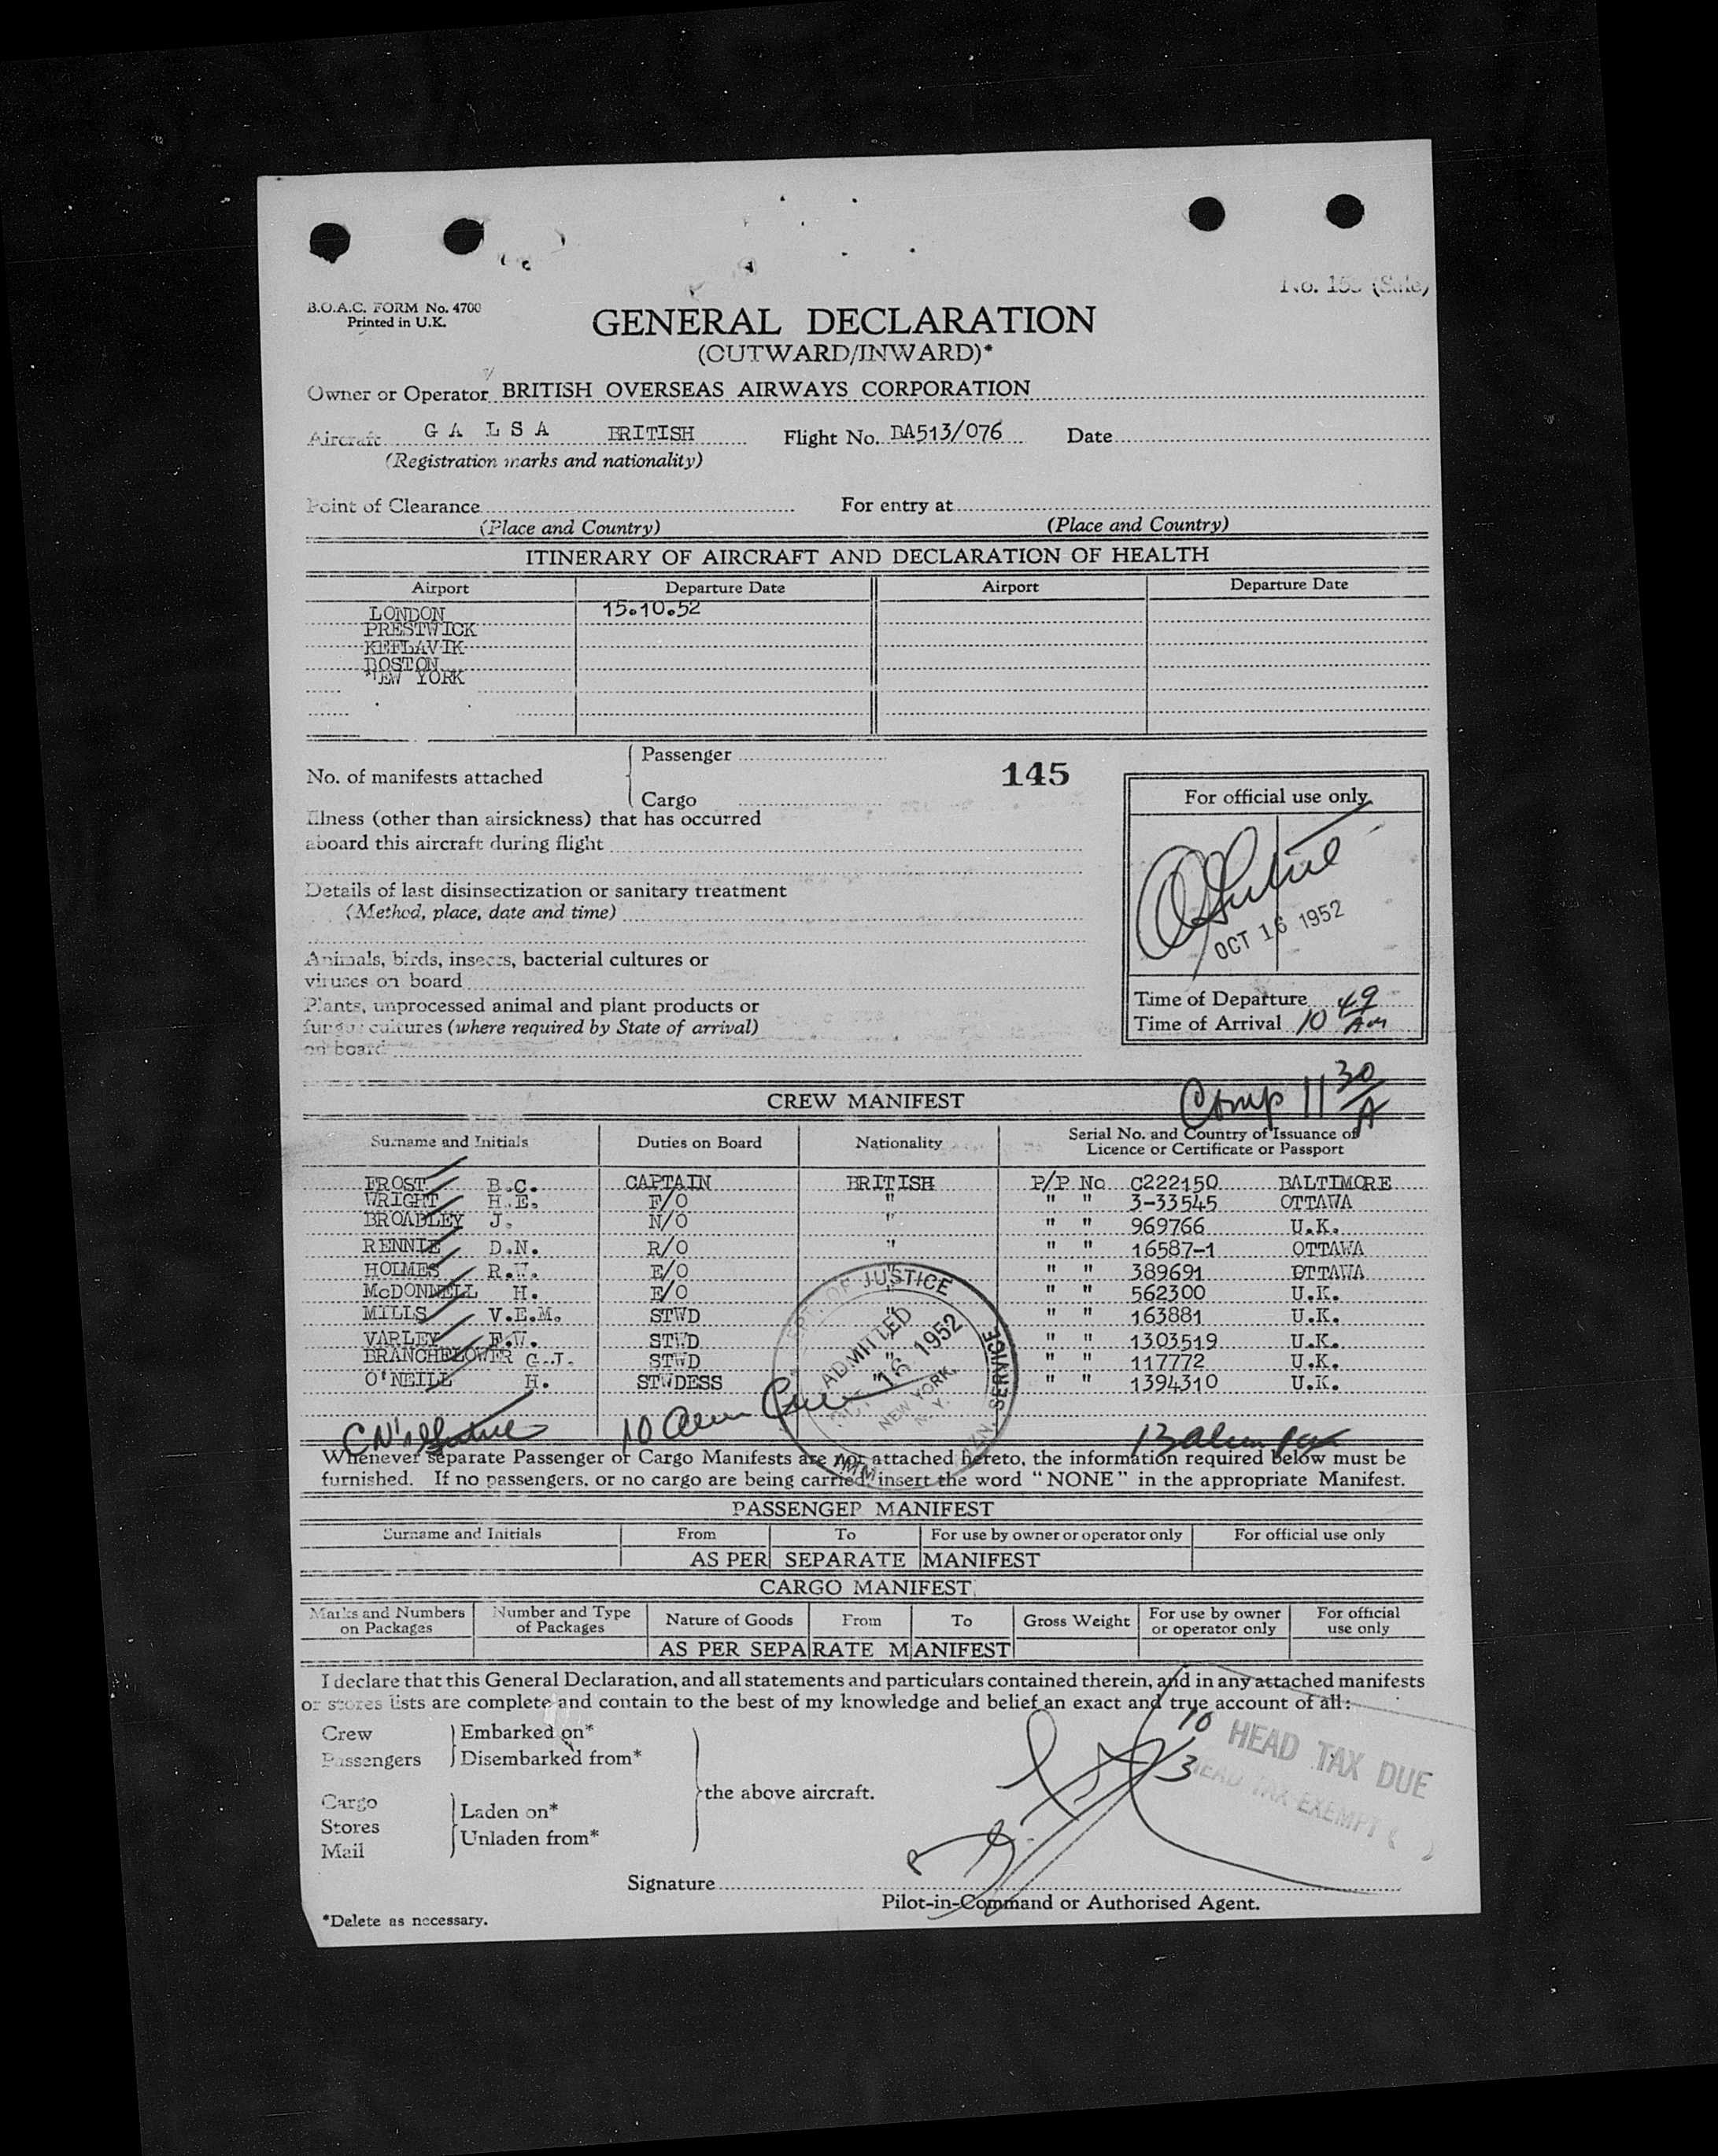 B.O.A.C. FORM No. 4700
Printed in U.K.
GENERAL DECLARATION
(OUTWARD/INWARD)*
Owner or Operator BRITISH OVERSEAS AIRWAYS CORPORATION
Aircraft G A L S A BRITISH Flight No. BA513/076 Date
(Registration marks and nationality)
Point of Clearance For entry at
(Place and Country) (Place and Country)
ITINERARY OF AIRCRAFT AND DECLARATION OF HEALTH
Airport Departure Date Airport Departure Date
LONDON 15.10.52
PRESTWICK
KEFLAVIK
BOSTON
NEW YORK
Passenger
No. of manifests attached 145
Cargo
For official use only
Illness (other than airsickness) that has occurred
aboard this aircraft during flight
Details of last disinsectization or sanitary treatment
(Method, place, date and time)
OCT 16 1952
Animals, birds, insects, bacterial cultures or
viruses on board
Plants, unprocessed animal and plant products or
fungus cultures (where required by State of arrival)
on board
Time of Departure
Time of Arrival 10 49 AM
Comp 11 30/A
CREW MANIFEST
Surname and Initials Duties on Board Nationality Serial No. and Country of Issuance of
Licence or Certificate or Passport
FROST B.C. CAPTAIN BRITISH P/P No C222150 BALTIMORE
WRIGHT H.E. F/O " " " 3-33545 OTTAWA
BROADLEY J. N/O " " " 969766 U.K.
RENNIE D.N. R/O " " " 16587-1 OTTAWA
HOLMES R.W. E/O " " " 389691 OTTAWA
McDONNELL H. E/O " " " 562300 U.K.
MILLS V.E.M. STWD " " " 163881 U.K.
VARLEY F.W. STWD " " " 1303519 U.K.
BRANCHFLOWER G.J. STWD " " " 117772 U.K.
O'NEILL H. STWDESS " " " 1394310 U.K.
DEPT. OF JUSTICE
ADMITTED
OCT 16 1952
NEW YORK, N.Y.
IMM. NZN. SERVICE
10 Alien Crew 13 alien pax
Whenever separate Passenger or Cargo Manifests are not attached hereto, the information required below must be
furnished. If no passengers, or no cargo are being carried, insert the word "NONE" in the appropriate Manifest.
PASSENGER MANIFEST
Surname and Initials From To For use by owner or operator only For official use only
AS PER SEPARATE MANIFEST
CARGO MANIFEST
Marks and Numbers on Packages Number and Type of Packages Nature of Goods From To Gross Weight For use by owner or operator only For official use only
AS PER SEPARATE MANIFEST
I declare that this General Declaration, and all statements and particulars contained therein, and in any attached manifests
or stores lists are complete and contain to the best of my knowledge and belief an exact and true account of all:
Crew Embarked on*
Passengers Disembarked from*
the above aircraft.
Cargo Laden on*
Stores
Mail Unladen from*
10 HEAD TAX DUE
13 HEAD TAX EXEMPT ( )
Signature
Pilot-in-Command or Authorised Agent.
*Delete as necessary.